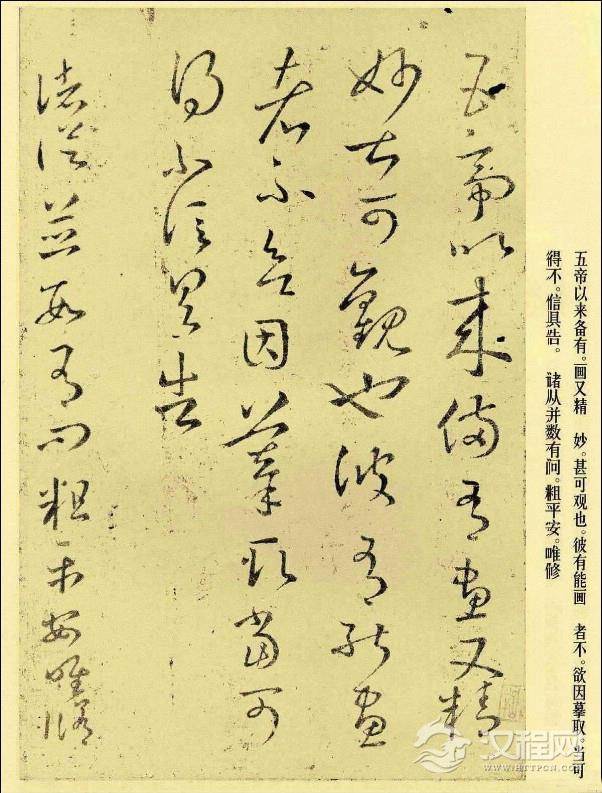 五帝以来备有。画又精 妙。甚可观也。彼有能画 者不。欲因摹取。当可
得不。信具告。 诸从并数有问。粗平安。唯修
五帝以來備有畫又精
妙甚可觀也彼有能畫
者不欲因摹取當可
得不信具告
諸從並數有問粗平安唯脩
汉程网
HTTPCN.COM